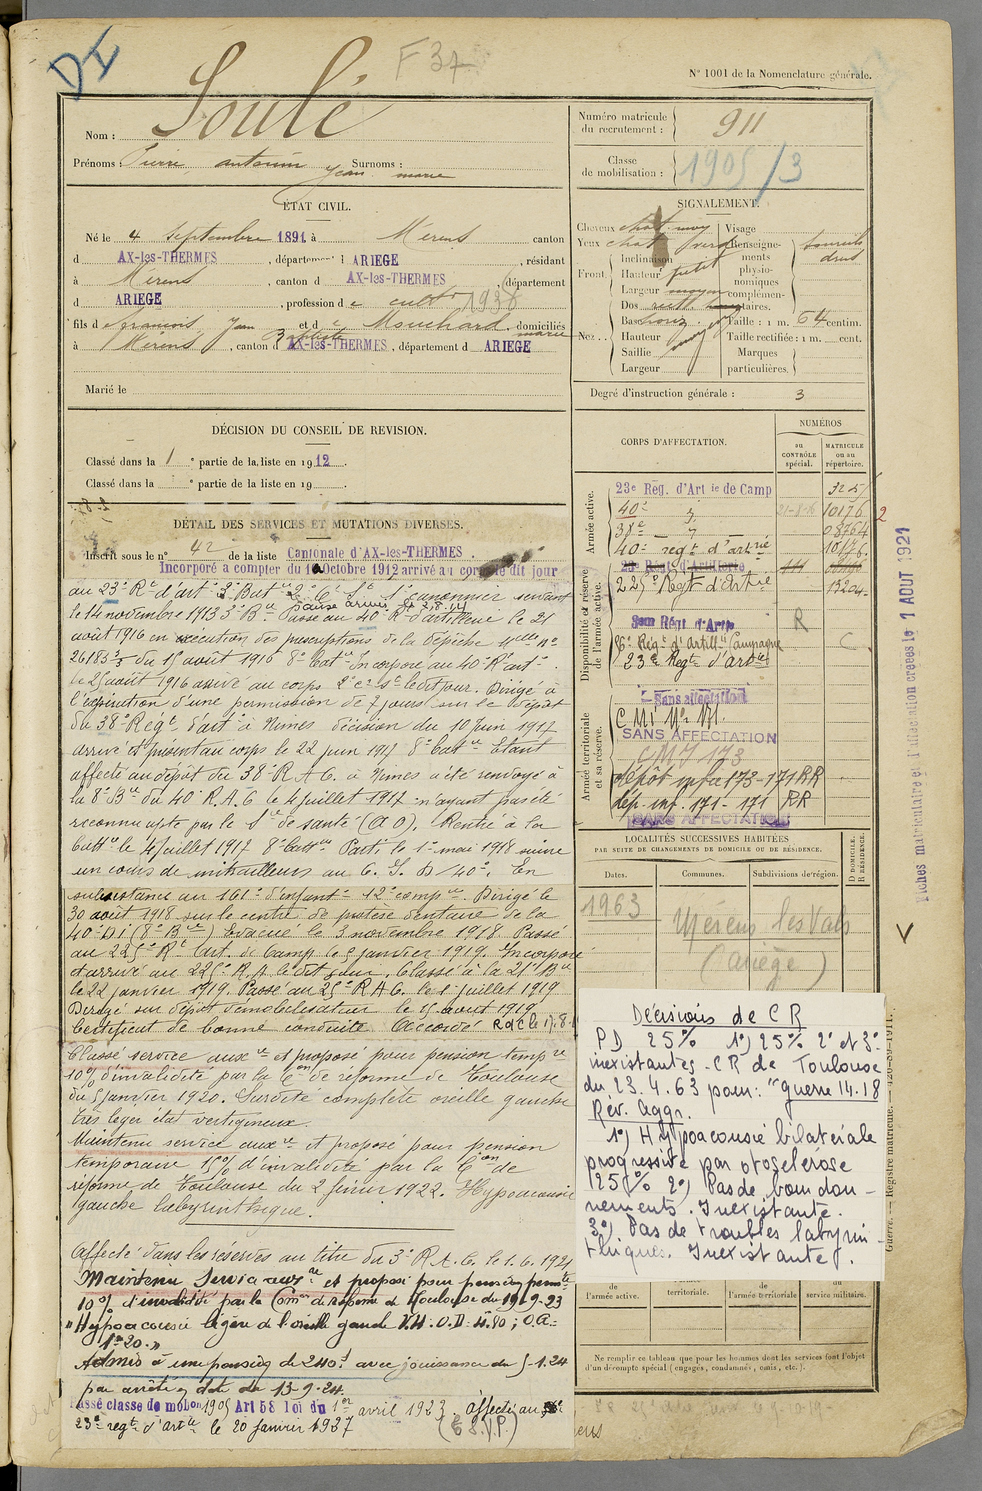 DI
F 37
N° 1001 de la Nomenclature générale.
Nom : Soulé
Prénoms : Pierre antonin Jean marie Surnoms :
Numéro matricule du recrutement : 911
Classe de mobilisation : 1905/3
ÉTAT CIVIL.
Né le 4 septembre 1891 à Mérens canton
d AX-les-THERMES, département d ARIEGE, résidant
à Mérens, canton d AX-les-THERMES, département
d ARIEGE, profession de cultr 1938
fils de François, Jean Baptiste et de Mouchard marie, domiciliés
à Mérens, canton d AX-les-THERMES, département d ARIEGE
Marié le
SIGNALEMENT.
Cheveux chat. moy Visage
Yeux chat verd Renseigne-
Inclinaison ments
Front. Hauteur petit physio-
nomiques
Largeur moyen complémen-
Dos rect. taires.
sourcils
drus
Base horiz. Taille : 1 m. 64 centim.
Nez.. Hauteur moy Taille rectifiée : 1 m. cent.
Saillie Marques
Largeur particulières.
Degré d'instruction générale : 3
DÉCISION DU CONSEIL DE REVISION.
Classé dans la 1e partie de la liste en 1912.
Classé dans la e partie de la liste en 19
CORPS D'AFFECTATION.
NUMÉROS
au CONTRÔLE spécial.
MATRICULE ou au répertoire.
Armée active.
23e Rég. d'Artie de Camp 325
40e 21-8-16 10176 2
38e 08764
40e regt d'artrie 10176
Disponibilité et réserve de l'armée active.
225e Regt d'Artrie 13204
R
6e Régt d'Artillie Campagne C
23e Regt d'artie
Armée territoriale et sa réserve.
Sans affectation
SANS AFFECTATION
CMI 173
dépôt infie 173-171 RR
dép. inf. 171-171 RR
SANS AFFECTATION
DÉTAIL DES SERVICES ET MUTATIONS DIVERSES.
Inscrit sous le n° 42 de la liste Cantonale d'AX-les-THERMES.
Incorporé a compter du 10 octobre 1912 arrivé au corps le dit jour
au 23e Rt d'art. 3e Batie 2e C. St 1er canonnier servant
le 14 novembre 1913 3e Bie Passé au 40e Rt d'artillerie le 21
août 1916 en execution des prescriptions de la dépêche Mlle No
26183 3/3 du 15 août 1916 8e Batie Incorporé au 40e Rt art.
le 25 août 1916 arrivé au corps 2e cr st ledit jour. Dirigé à
l'expiration d'une permission de 7 jours sur le dépôt
du 38e Régt d'art à Nimes décision du 10 juin 1917
arrivé et présent au corps le 22 juin 1917 8e Batie Etant
affecté au dépôt du 38e R A C. à Nimes a été renvoyé à
la 8e Bie du 40e R. A. C le 4 juillet 1917 n'ayant pas été
reconnu apte par le Sce de santé (A O). Rentré à la
battie le 4 juillet 1917 8e battie Parti le 1er mai 1918 suivre
un cours de mitrailleurs au C. I. D/40e. En
subsistance au 161e d'infanie 12e compie Dirigé le
30 août 1918 sur le centre de protése dentaire de la
40e DI (8e Bie) Evacué le 3 novembre 1918 Passé
au 225e Rt Art. de Camp le 5 janvier 1919. Incorporé
et arrivé au 225e R. A. ledit jour. Classé à la 21e Bie
le 22 janvier 1919. Passé au 25e R A C. le 1er juillet 1919
Dirigé sur dépôt démobilisateur le 15 août 1919
Certificat de bonne conduite Accordé RdC le 17.8.
Classé service auxre et proposé pour pension tempre
10% d'invalidité par la Con de réforme de Toulouse
du 5 janvier 1920. Surdité complète oreille gauche
très leger état vertigineux.
Maintenu service auxre et proposé pour pension
temporaire 15% d'invalidité par la Con de
réforme de Toulouse du 2 février 1922. Hypoacousie
gauche labyrinthique.
Affecté dans les réserves au titre du 3e R. A. C. le 1.6.1921
Maintenu Service auxre et proposé pour pension permte
10% d'invalidité par la Comon de réforme de Toulouse du 19-9-23
"Hypoacousie légère de l'oreille gauche V.H. O.D = 4.80 ; O.G =
1m20."
Admis à une pension de 240f avec jouissance du 5-1-24
par arrêté en date du 13-9-24.
Passé classe de mobon 1905 Art 58 loi du 1er avril 1923. affecté au
23e regt d'artie le 20 janvier 1937 (C S.P.)
LOCALITÉS SUCCESSIVES HABITÉES
PAR SUITE DE CHANGEMENTS DE DOMICILE OU DE RÉSIDENCE.
D DOMICILE.
R RÉSIDENCE.
Dates. Communes. Subdivisions de région.
1963 Mérens les Vals
(Ariège)
Décisions de CR
PD 25% 1°) 25% 2° et 3°
inexistantes. CR de Toulouse
du 23.4.63 pour : "guerre 14.18
Rév. Aggr.
1°) Hypoacousie bilatérale
progressive par otosclérose
(25%) 2°) Pas de bourdon-
nements. Inexistante.
3°) Pas de troubles labyrin-
thiques. Inexistante.
de l'armée active.
territoriale.
de l'armée territoriale
du service militaire.
Ne remplir ce tableau que pour les hommes dont les services font l'objet
d'un décompte spécial (engagés, condamnés, omis, etc.).
Fiches matriculaire et d'affectation créées le 1 AOUT 1921
Guerre. — Registre matricule. — 426-89-1911.